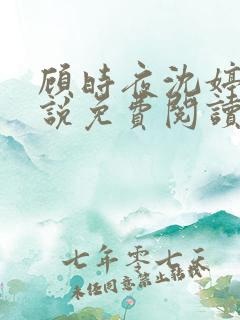 顾時夜沈婷
說免費閱讀
七年零七天
未经同意禁止转载